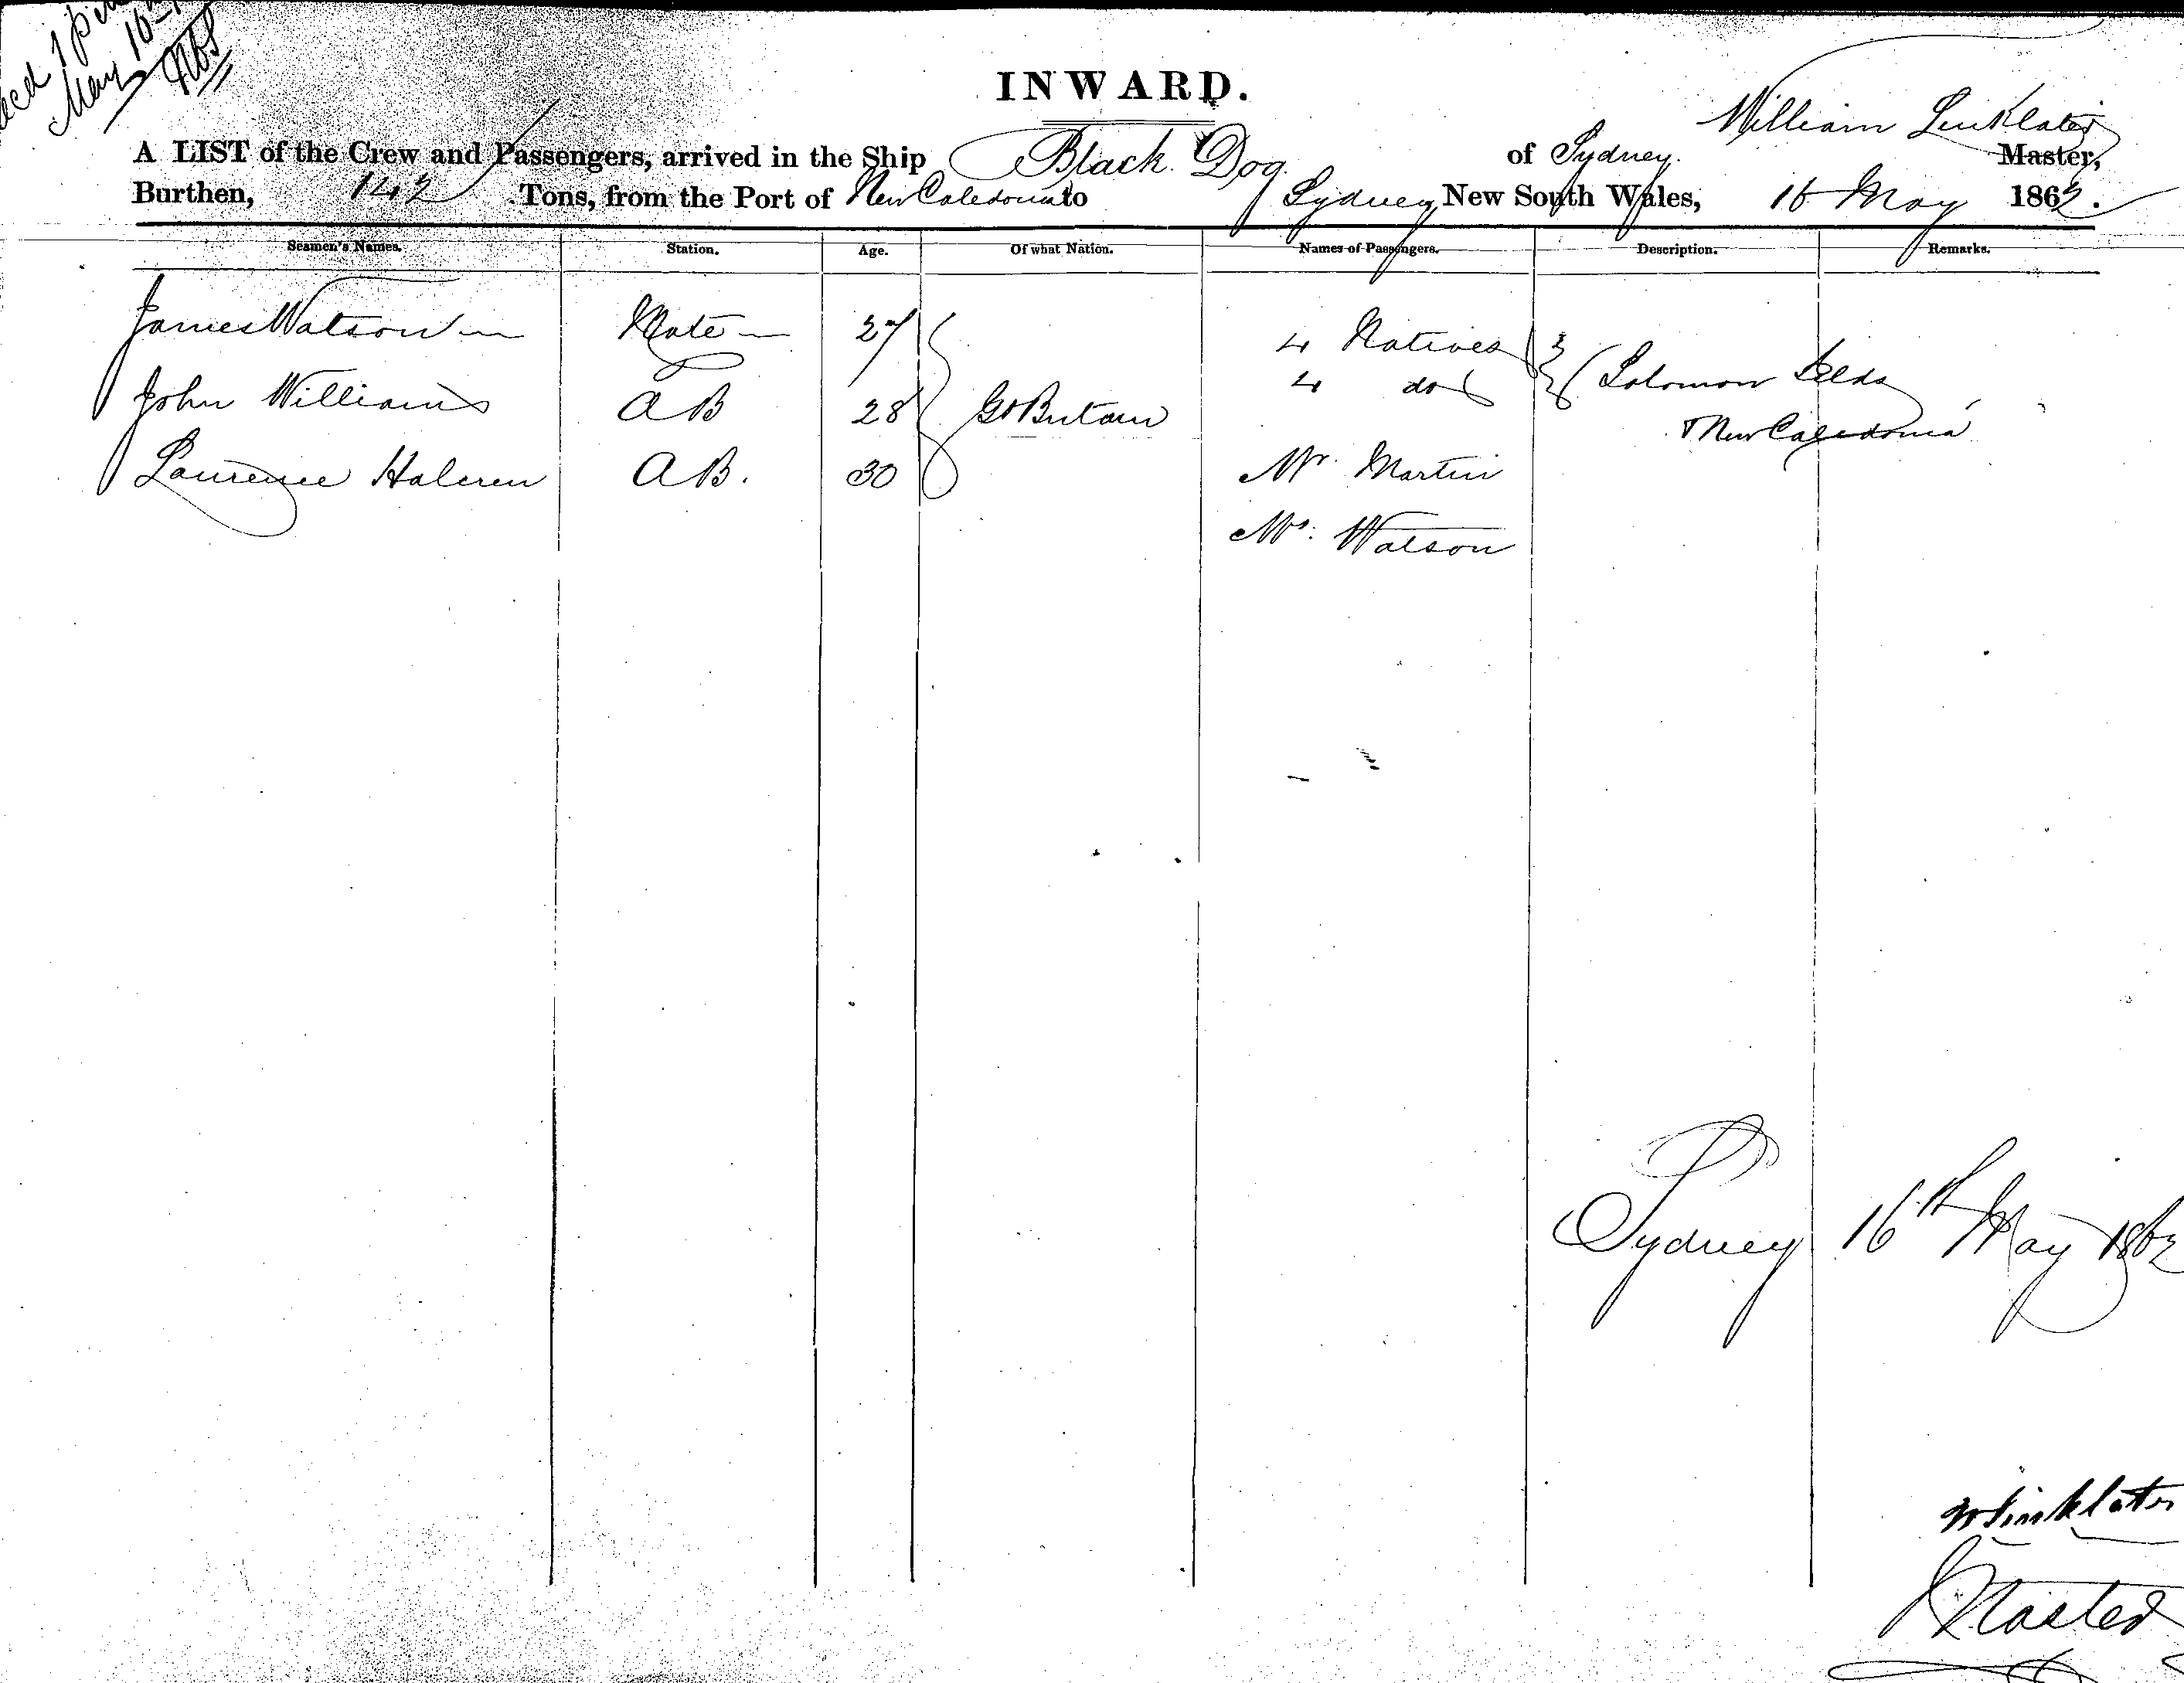 May 16
INWARD.
William Linklater
A LIST of the Crew and Passengers, arrived in the Ship Black Dog of Sydney Master,
Burthen, 142 Tons, from the Port of New Caledonia to Sydney New South Wales, 16 May 1862.
Seamen's Names. Station. Age. Of what Nation. Names of Passengers. Description. Remarks.
James Watson Mate 27 4 Natives
4 do Solomon Islds
John Williams AB 28 Gt Britain & New Caledonia
Laurence AB. 30 Mr. Martin
Mrs. Watson
Sydney 16th May 1862
W Linklater
Master